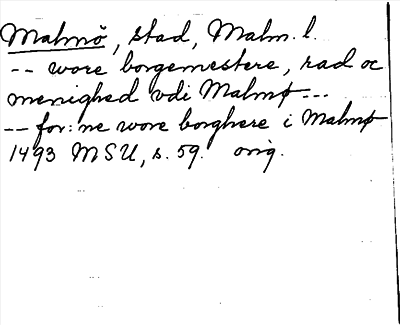 Malmö, stad, Malm. l.
-- wore borgemestere, rad oc
menighed vdi Malmø ---
-- for: ne wore borghere i Malmø
1493 MSU, s. 59. orig.